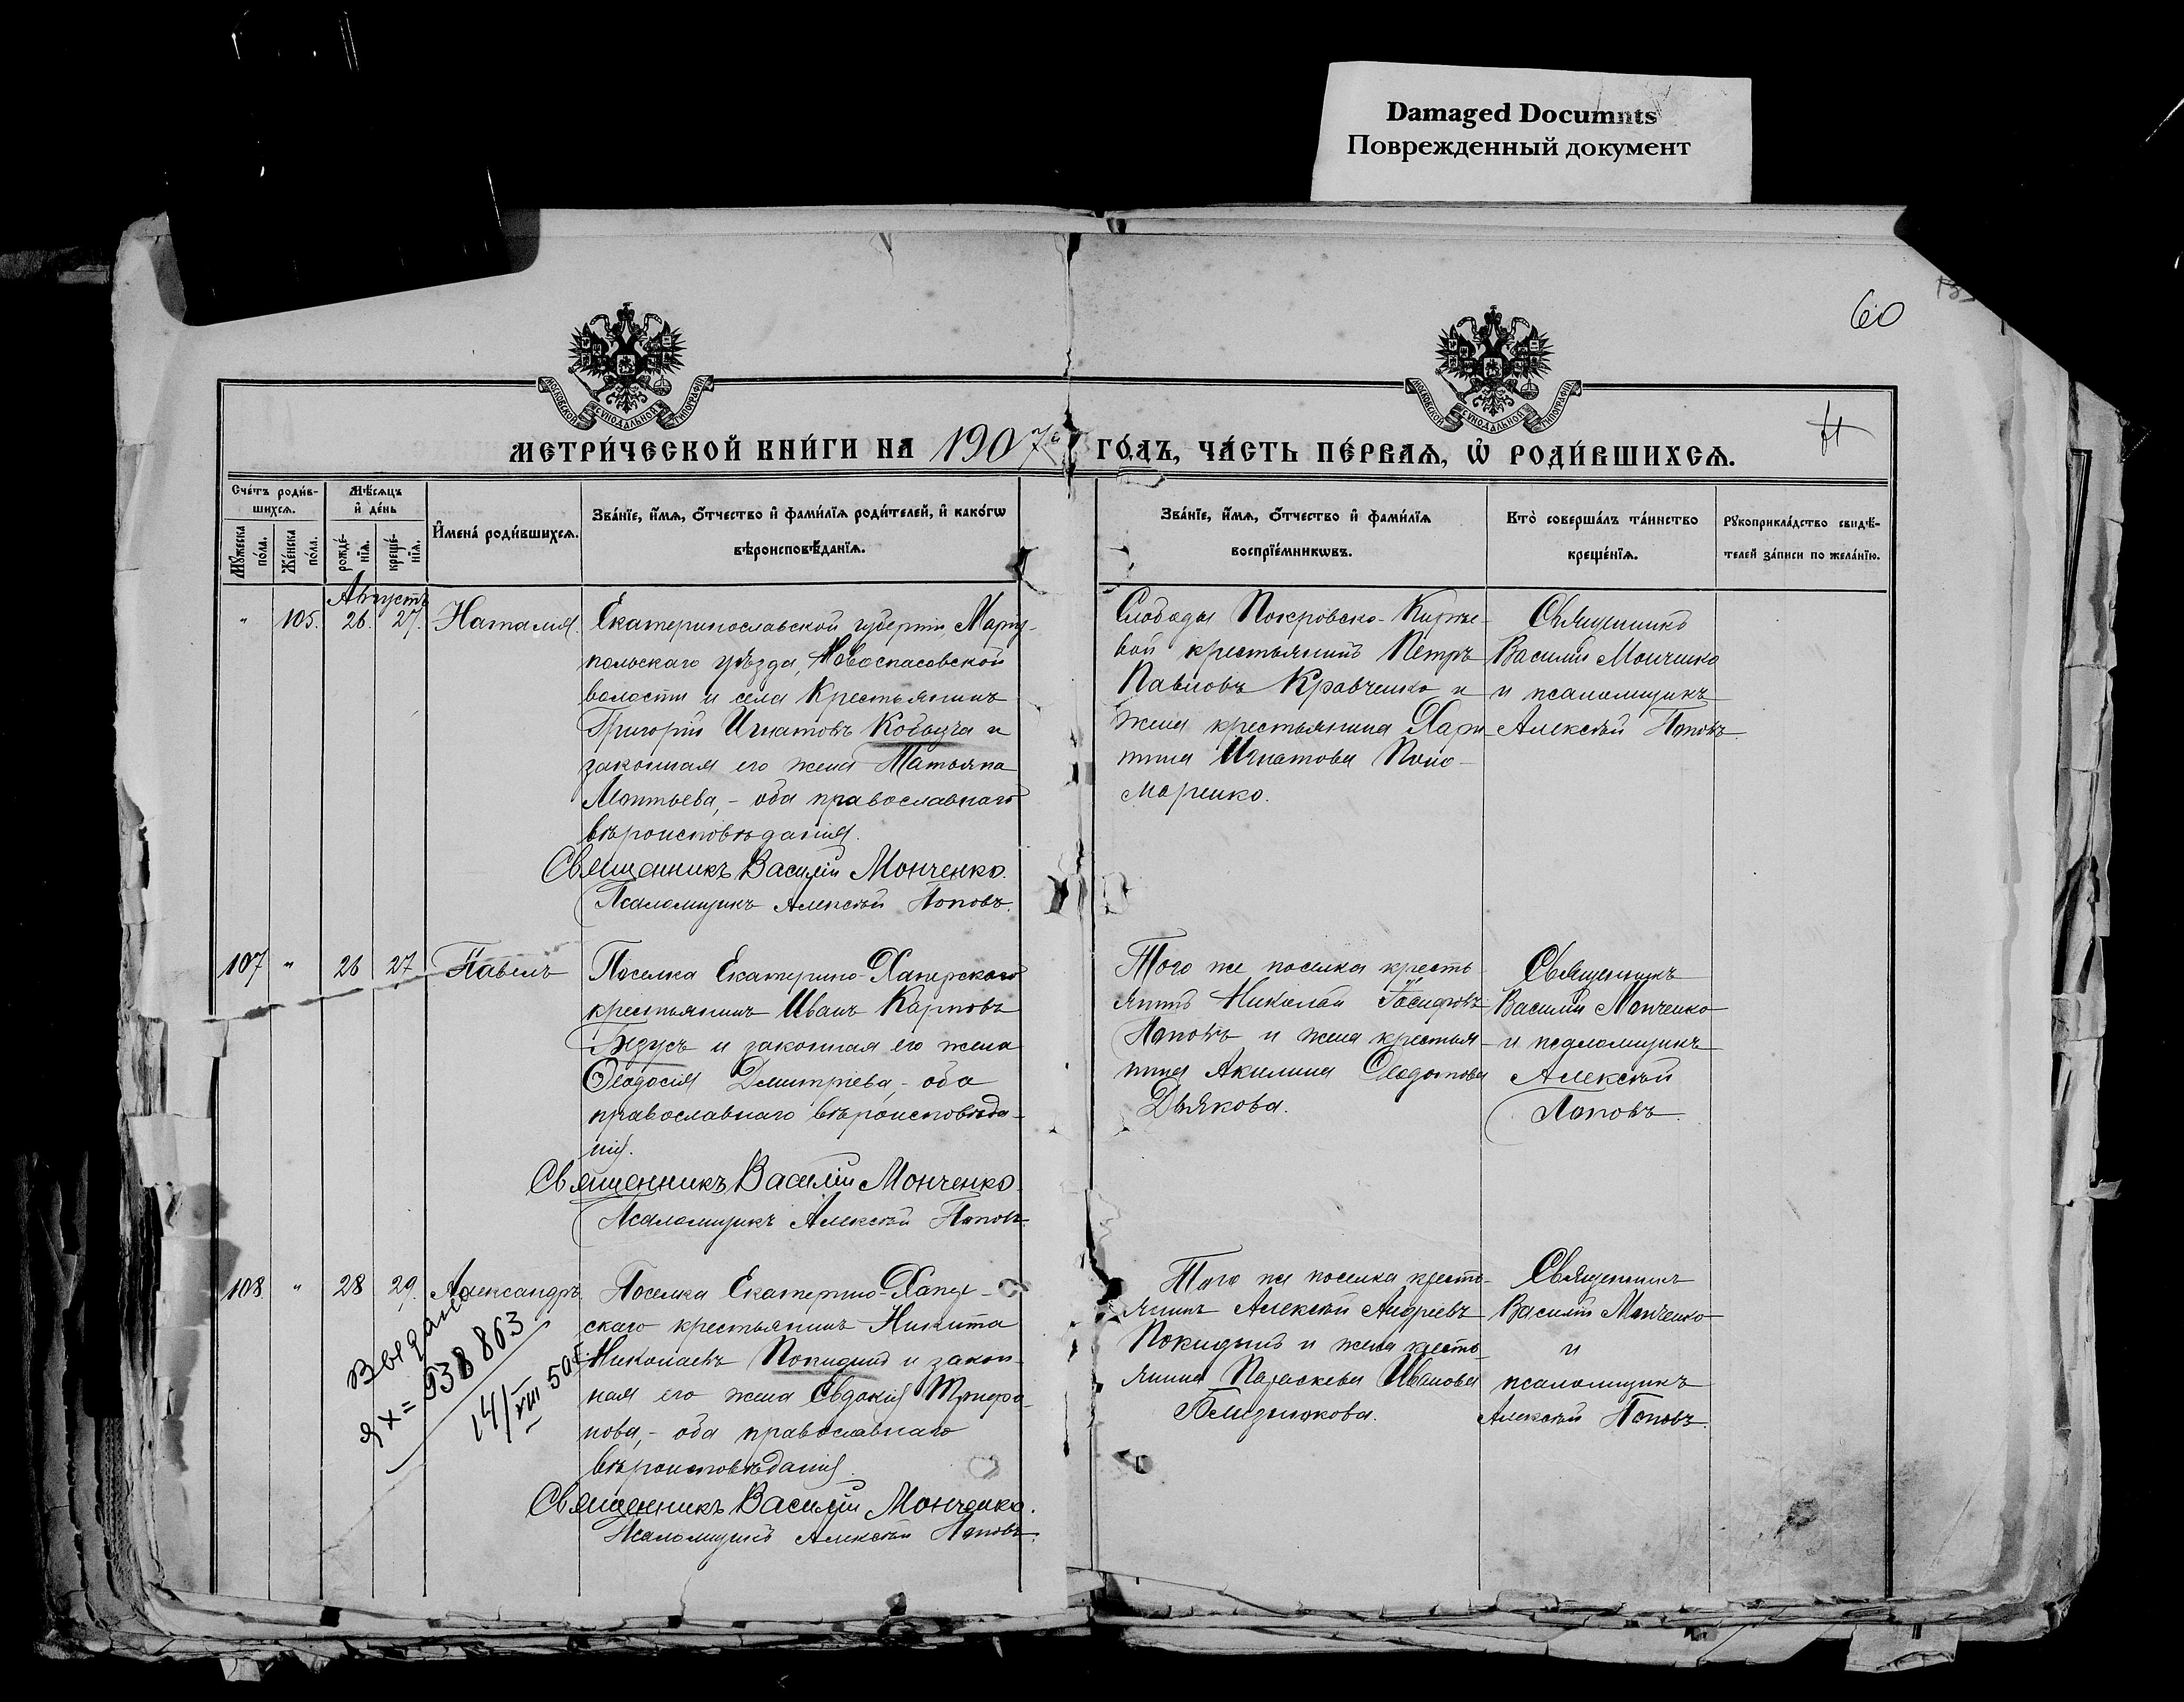 Damaged Documnts
Поврежденный документ
60
МОСКОВСКОЙ СѴНОДАЛЬНОЙ ТИПОГРАФІИ
МОСКОВСКОЙ СѴНОДАЛЬНОЙ ТИПОГРАФІИ
МЕТРИ́ЧЕСКОЙ КНИ́ГИ НА 1907й ГО́ДЪ, ЧА́СТЬ ПЕ́РВАѦ, Ѡ҆ РОДИ́ВШИХСѦ.
Сче́тъ роди́в-
шихсѧ.
Мѹ́жеска по́ла.
Же́нска по́ла.
Мѣ́сѧцъ
и҆ де́нь
рожде́-
нїѧ.
креще́-
нїѧ.
И҆мена̀ роди́вшихсѧ.
Зва́нїе, и҆́мѧ, ѻ҆́тчество и҆ фами́лїѧ роди́телей, и҆ како́гѡ
вѣроисповѣ́данїѧ.
Зва́нїе, и҆́мѧ, ѻ҆́тчество и҆ фами́лїѧ
воспрїе́мникѡвъ.
Кто̀ соверша́лъ та́инство
креще́нїѧ.
Рꙋкоприкла́дство свидѣ́-
телей за́писи по жела́нїю.
Августъ
" 105. 26. 27. Наталія.
Екатеринославской губерніи Маріу-
польскаго уѣзда, Новоспасовской
волости и села крестьянинъ
Григорій Игнатовъ Кобыща и
законная его жена Татьяна
Леонтьева, - оба православнаго
вѣроисповѣданія.
Священникъ Василій Монченко.
Псаломщикъ Алексѣй Поповъ.
Слободы Покровско-Кирѣе-
вой крестьянинъ Петръ
Павловъ Кравченко и
жена крестьянина Хари-
тина Игнатова Поно-
маренко.
Священникъ
Василій Монченко
и псаломщикъ
Алексѣй Поповъ.
107 " 26 27 Павелъ
Поселка Екатерино-Хаперскаго
крестьянинъ Иванъ Карповъ
и законная его жена
Ѳеодосія Дмитріева, - оба
православнаго вѣроисповѣда-
нія.
Священникъ Василій Монченко.
Псаломщикъ Алексѣй Поповъ.
Того же поселка кресть-
янинъ Николай Іосифовъ
Поповъ и жена крестья-
нина Акилина Ѳеодотова
Дьякова.
Священникъ
Василій Монченко
и псаломщикъ
Алексѣй
Поповъ.
108. " 28 29. Александръ.
Поселка Екатерино-Хапер-
скаго крестьянинъ Никита
Николаевъ Покидинъ и закон-
ная его жена Евдокія Трифо-
нова, - оба православнаго
вѣроисповѣданія.
Священникъ Василій Монченко.
Псаломщикъ Алексѣй Поповъ.
Того же поселка кресть-
янинъ Алексѣй Андреевъ
Покидинъ и жена кресть-
янина Параскева Иванова
Близнюкова.
Священникъ
Василій Монченко
и
псаломщикъ
Алексѣй Поповъ.
938863
14/VIII 50г.